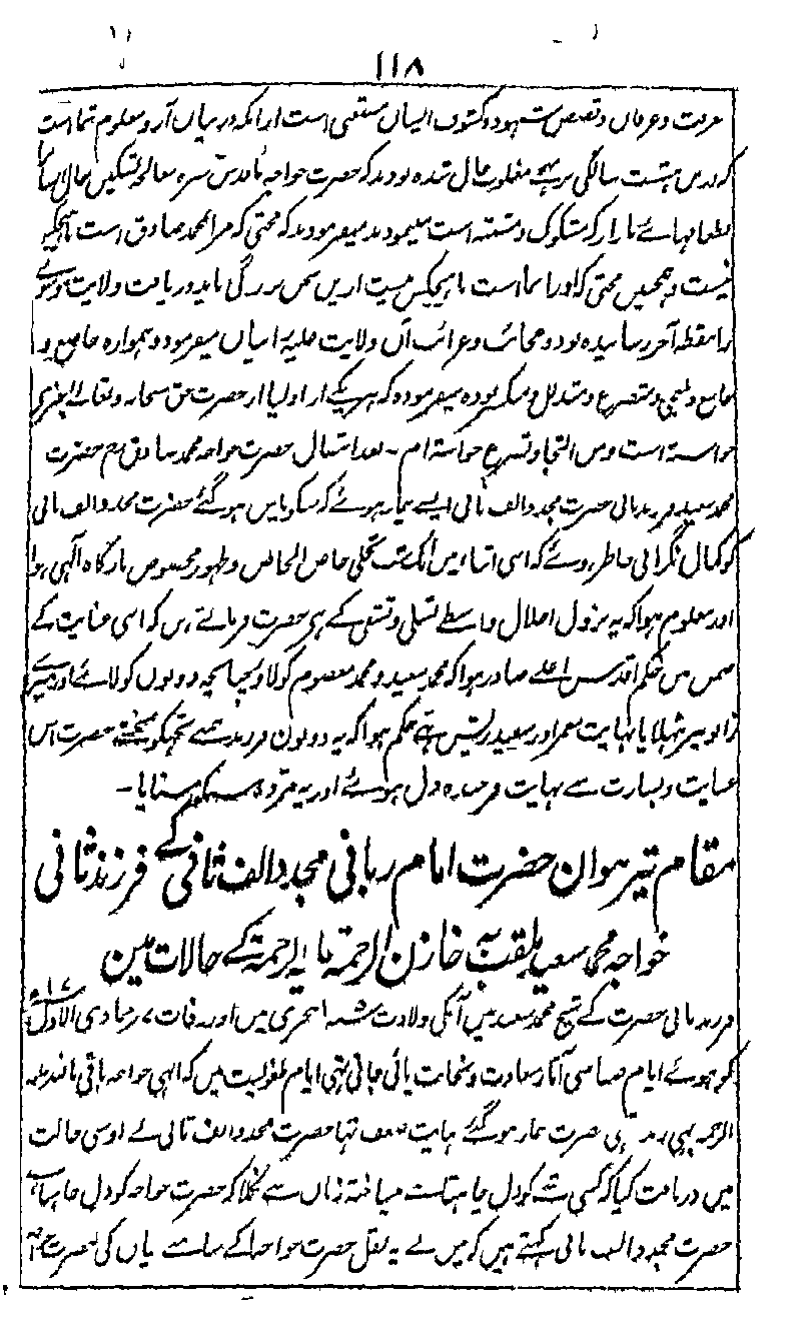 ۱۱۸
معرفت و عرفان و قصص شهود و کشوف ایشان مستغنی است از آنکه در بیان آرد معلوم شماست
که در سن هشت سالگی مغلوب حال شده بودند که حضرت خواجه ما قدس سره معالجه تسکین حال ایشان
بطعامهائے بازار که مشکوک و مشتبه است مینمودند میفرمودند که محبتی که مرا بمحمد صادق است با هیچکس
نیست و همچنین محبتی که او را بماست با هیچکس نیست ازین سخن بزرگی باید دریافت ولایت موسوی
را بنقطه آخر رسانیده بود و عجائب و غرائب آن ولایت علیه را بیان میفرمود و همواره خاضع و
خاشع و ملتجی و متضرع و متذلل و منکسر بوده میفرموده که هر یکے از اولیا از حضرت حق سبحانه و تعالے چیزی
خواسته است و من التجا و تضرع خواسته ام - بعد انتقال حضرت خواجه محمد صادق حضرت
محمد سعید فرزند ثانی حضرت مجدد الف ثانی ایسے بیمار ہوئے کہ سکو یاس ہو گئے حضرت مجدد الف ثانی
کو کمال نگرانی خاطر ہوئے کہ اسی اثنا میں ایک شب تجلی خاص الخاص و ظہور مخصوص بارگاہ الٰہی ہوا
اور معلوم ہوا کہ یہ نزول اجلال واسطے تسلی و تشفی کے ہی حضرت فرماتے ہیں کہ اسی عنایت کے
ضمن میں حکم اقدس اعلے صادر ہوا کہ محمد سعید و محمد معصوم کو لاو چنانچہ دونوں کو لائے اور میرے
زانو پر بٹھلایا نہایت معمر اور سفید ریش تھے حکم ہوا کہ یہ دونون فرزند ہمنے تجہکو بخشے حضرت اس
عنایت و بشارت سے نہایت فرحندہ دل ہوئے اور یہ مژدہ سبکو سنایا -
مقام تیرہوان حضرت امام ربانی مجدد الف ثانی کے فرزند ثانی
خواجہ محمد سعید ملقب بہ خازن الرحمۃ علیہ الرحمۃ کے حالات مین
فرزند ثانی حضرت کے شیخ محمد سعید میں آنکی ولادت ہجری میں اور وفات ۲۷ جمادی الاول
کو ہوئے ایام صبا سی آثار سعادت و نجابت پائی جاتی تہی ایام طفولیت میں کہ ابہی خواجہ باقی باللہ علیہ
الرحمہ بہی زندہ تہی حضرت بیمار ہو گئے نہایت ضعف تہا حضرت مجدد الف ثانی نے اوسی حالت
میں دریافت کیا کہ کسی شے کو دل چاہتا ہے بیساختہ زباں سے نکلا کہ حضرت خواجہ کو دل چاہتا ہے
حضرت مجدد الف ثانی کہتے ہیں کہ میں نے یہ نقل حضرت خواجہ کے سامنے بیاں کی حضرت